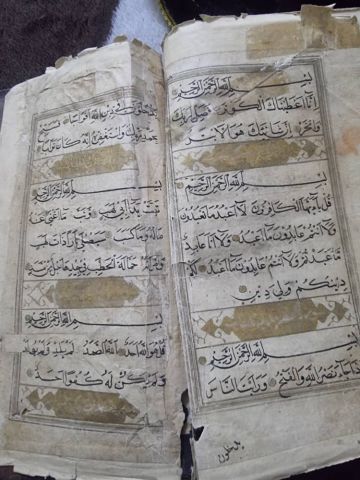 بِسْمِ اللهِ الرَّحْمٰنِ الرَّحِيمِ
اِنَّا اَعْطَيْنَاكَ الْكَوْثَرَ فَصَلِّ لِرَبِّكَ
وَانْحَرْ اِنَّ شَانِئَكَ هُوَ الْاَبْتَرُ
بِسْمِ اللهِ الرَّحْمٰنِ الرَّحِيمِ
قُلْ يَا اَيُّهَا الْكَافِرُونَ لَا اَعْبُدُ مَا تَعْبُدُونَ
وَلَا اَنْتُمْ عَابِدُونَ مَا اَعْبُدُ وَلَا اَنَا عَابِدٌ
مَا عَبَدْتُمْ وَلَا اَنْتُمْ عَابِدُونَ مَا اَعْبُدُ لَكُمْ
دِينُكُمْ وَلِيَ دِينِ
بِسْمِ اللهِ الرَّحْمٰنِ الرَّحِيمِ
اِذَا جَاءَ نَصْرُ اللهِ وَالْفَتْحُ وَرَاَيْتَ النَّاسَ
يدخلون
يَدْخُلُونَ فِي دِينِ اللهِ اَفْوَاجًا فَسَبِّحْ
بِحَمْدِ رَبِّكَ وَاسْتَغْفِرْهُ اِنَّهُ كَانَ تَوَّابًا
بِسْمِ اللهِ الرَّحْمٰنِ الرَّحِيمِ
تَبَّتْ يَدَا اَبِي لَهَبٍ وَتَبَّ مَا اَغْنٰى عَنْهُ
مَالُهُ وَمَا كَسَبَ سَيَصْلٰى نَارًا ذَاتَ لَهَبٍ
وَامْرَاَتُهُ حَمَّالَةَ الْحَطَبِ فِي جِيدِهَا حَبْلٌ مِنْ مَسَدٍ
بِسْمِ اللهِ الرَّحْمٰنِ الرَّحِيمِ
قُلْ هُوَ اللهُ اَحَدٌ اَللهُ الصَّمَدُ لَمْ يَلِدْ وَلَمْ يُولَدْ
وَلَمْ يَكُنْ لَهُ كُفُوًا اَحَدٌ